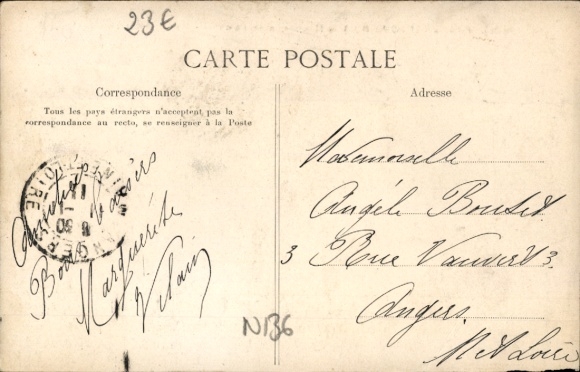 23€
CARTE POSTALE
Correspondance
Tous les pays étrangers n'acceptent pas la
correspondance au recto, se renseigner à la Poste
Amitiés
Bons baisers
Marguerite
Adresse
Mademoiselle
Angèle Boutet
3 Rue Vauvert 3.
Angers.
M et Loire
N136